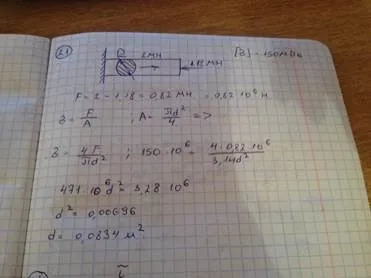 21
D 2МН 1,18МН [З] = 150МПа
F = 2 - 1,18 = 0,82 МН = 0,82 10⁶ Н
З = F/A ; A = πd²/4 =>
З = 4F/πd² ; 150 · 10⁶ = 4·0,82·10⁶/3,14d²
471·10⁶d² = 3,28 10⁶
d² = 0,00696
d = 0,0834 м².